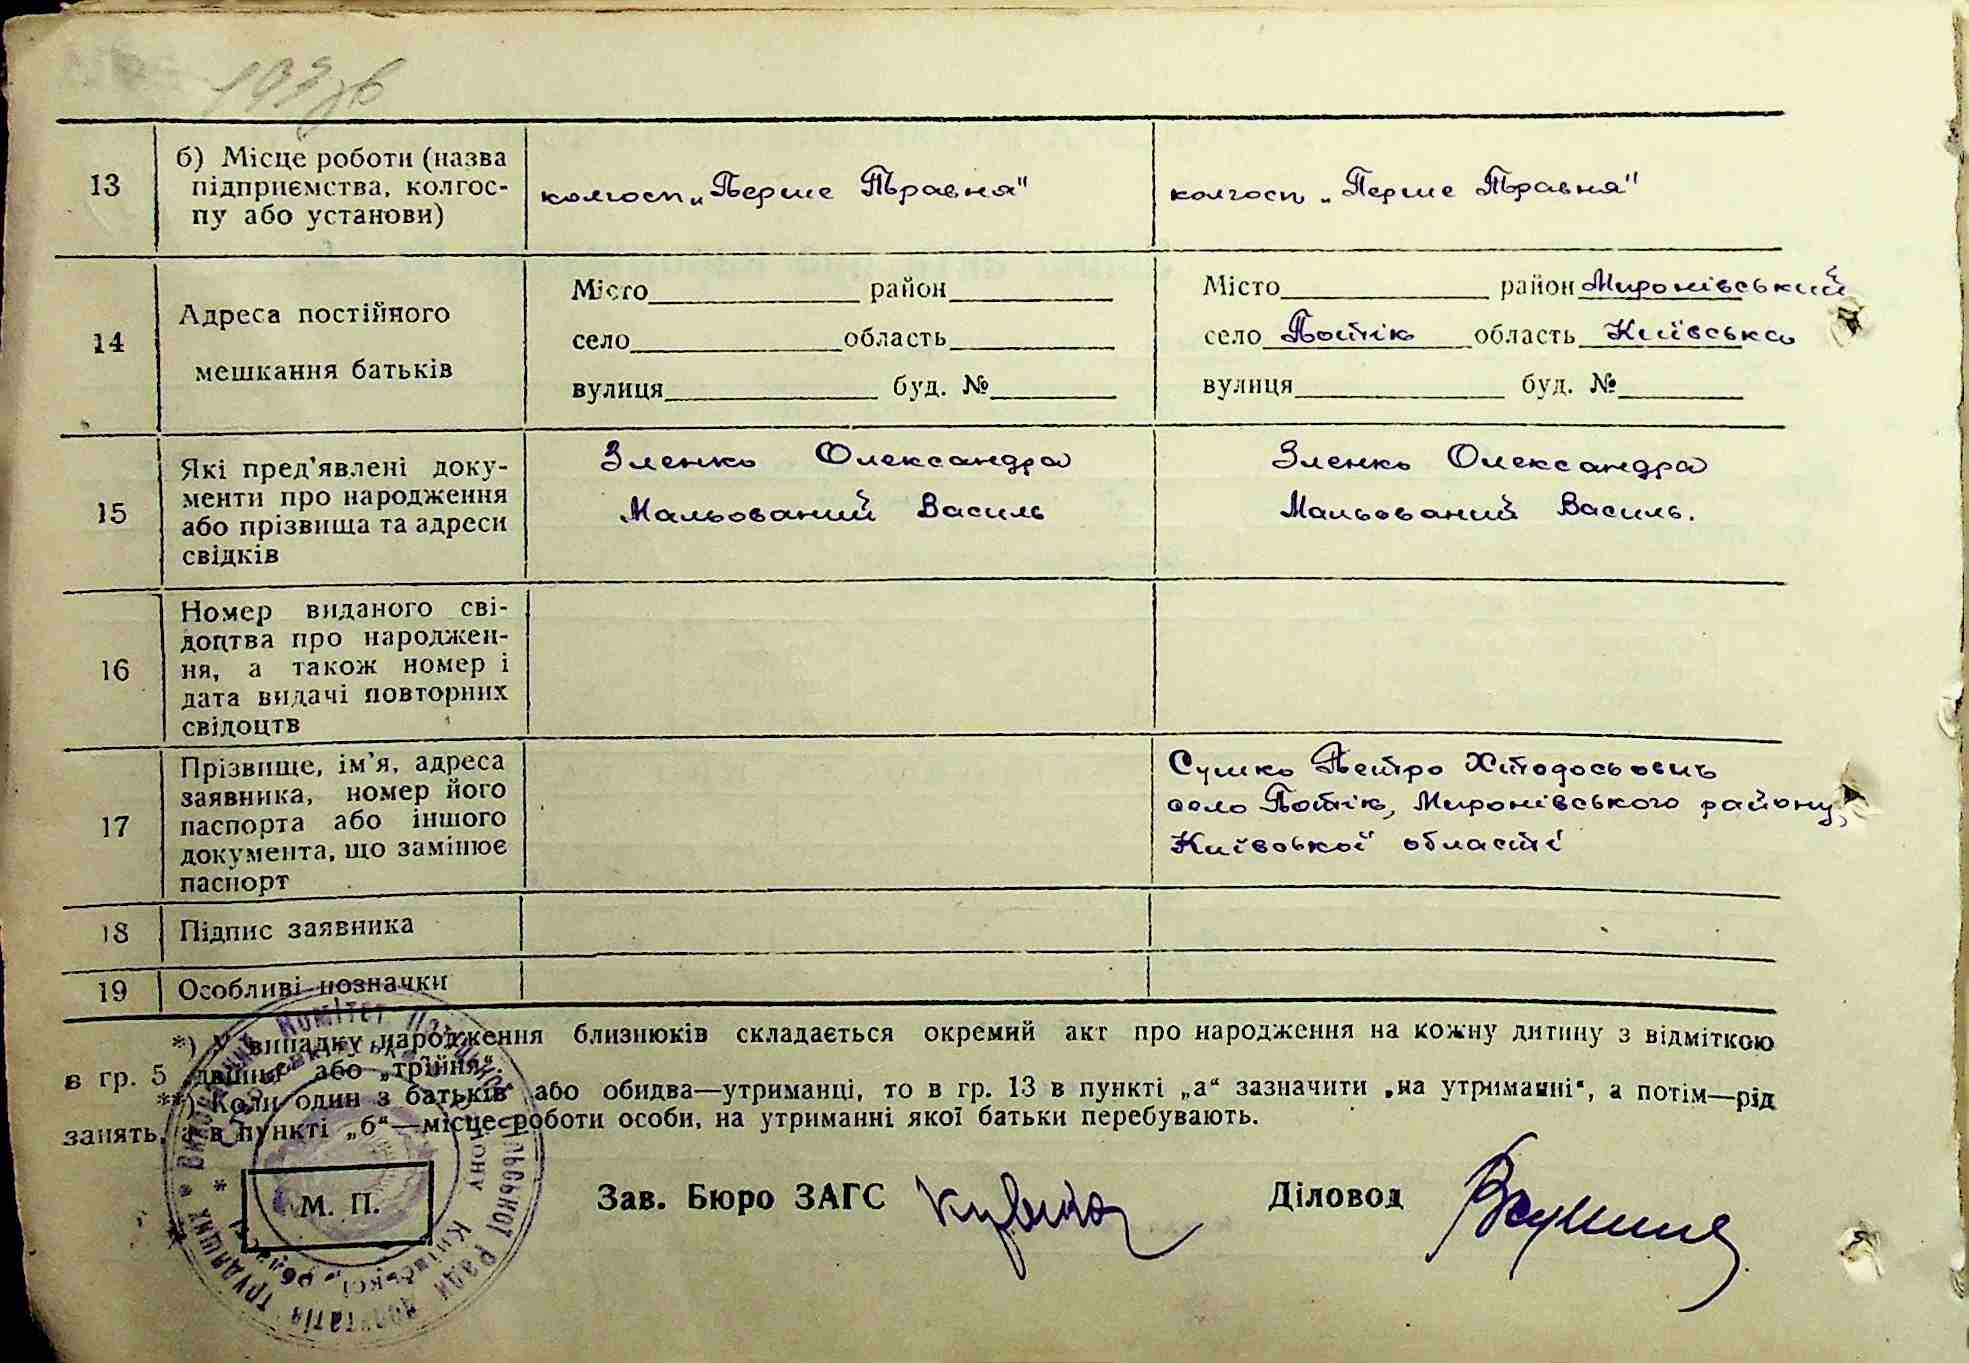 193зв
13
б) Місце роботи (назва
підприємства, колгос-
пу або установи)
колгосп „Перше Травня"
колгосп „Перше Травня"
14
Адреса постійного
мешкання батьків
Місто район
село область
вулиця буд. №
Місто район Миронівський
село Потік область Київська
вулиця буд. №
15
Які пред'явлені доку-
менти про народження
або прізвища та адреси
свідків
Зленко Олександра
Мальований Василь
Зленко Олександра
Мальований Василь.
16
Номер виданого сві-
доцтва про народжен-
ня, а також номер і
дата видачі повторних
свідоцтв
17
Прізвище, ім'я, адреса
заявника, номер його
паспорта або іншого
документа, що замінює
паспорт
Сушко Петро
село Потік, Миронівського району,
Київської області
18
Підпис заявника
19
Особливі позначки
*) У випадку народження близнюків складається окремий акт про народження на кожну дитину з відміткою
в гр. 5 „двійня" або „трійня".
**) Коли один з батьків або обидва—утриманці, то в гр. 13 в пункті „а" зазначити „на утриманні", а потім—рід
занять, а в пункті „б"—місце роботи особи, на утриманні якої батьки перебувають.
М. П.
Зав. Бюро ЗАГС
Діловод
Виконавчий Комітет сільської Ради депутатів трудящих
району Київської області